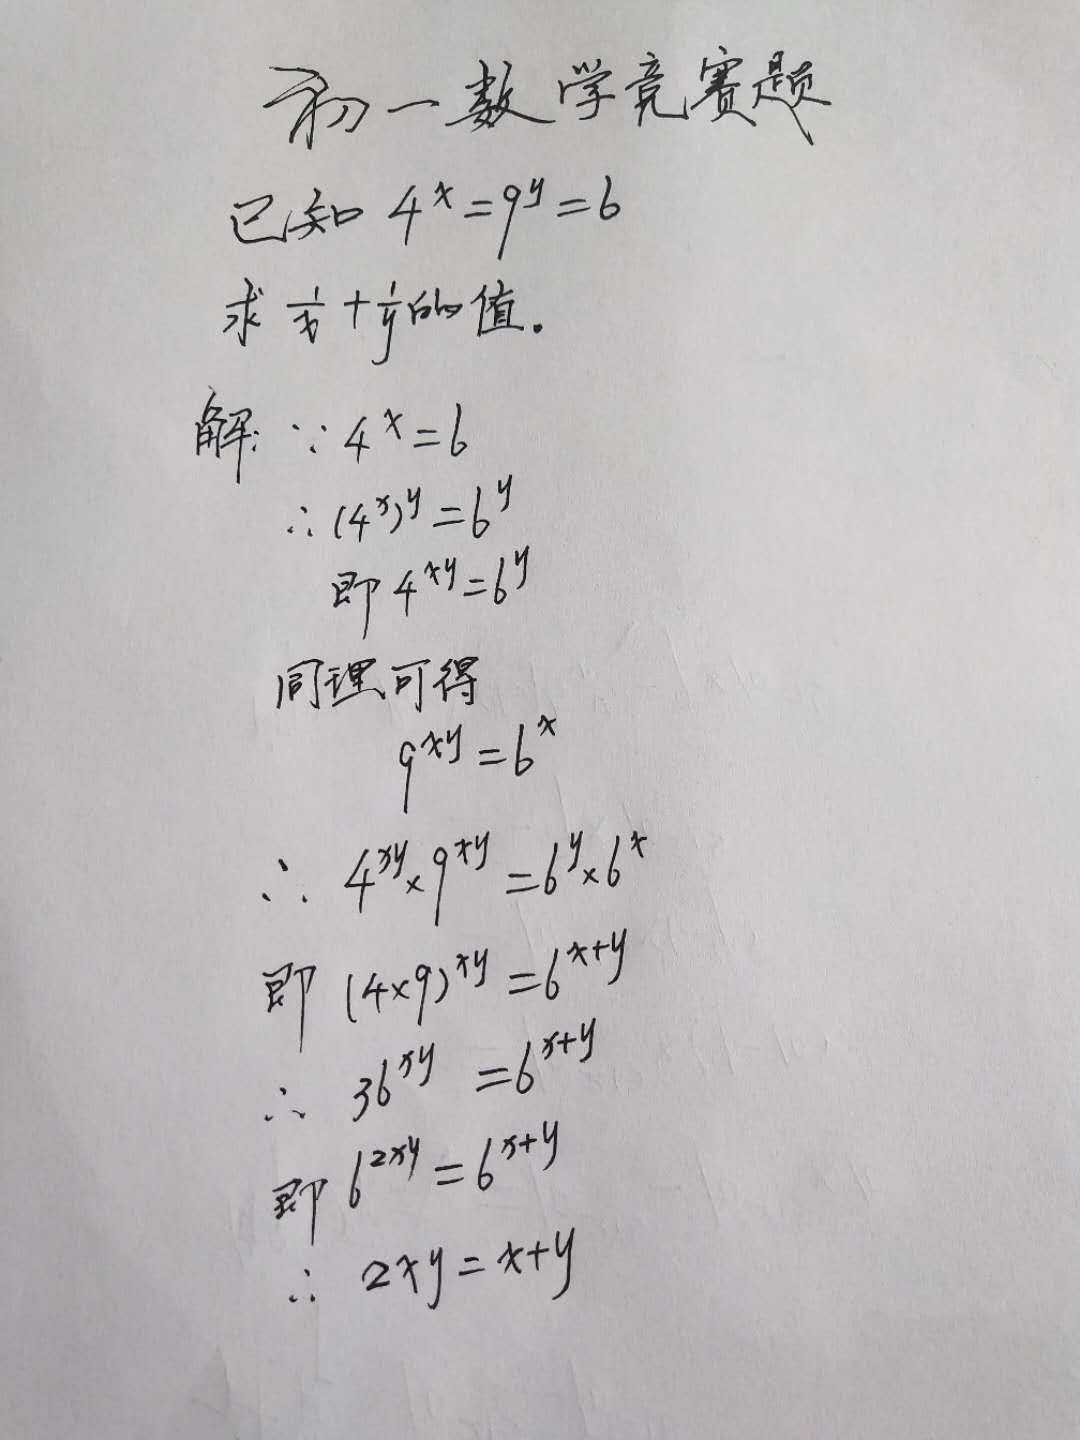 初一数学竞赛题
已知 4^x=9^y=6
求 1/x+1/y的值.
解: ∵4^x=6
∴(4^x)^y=6^y
即 4^xy=6^y
同理可得
9^xy=6^x
∴ 4^xy×9^xy=6^y×6^x
即 (4×9)^xy=6^x+y
∴ 36^xy=6^x+y
即 6^2xy=6^x+y
∴ 2xy=x+y